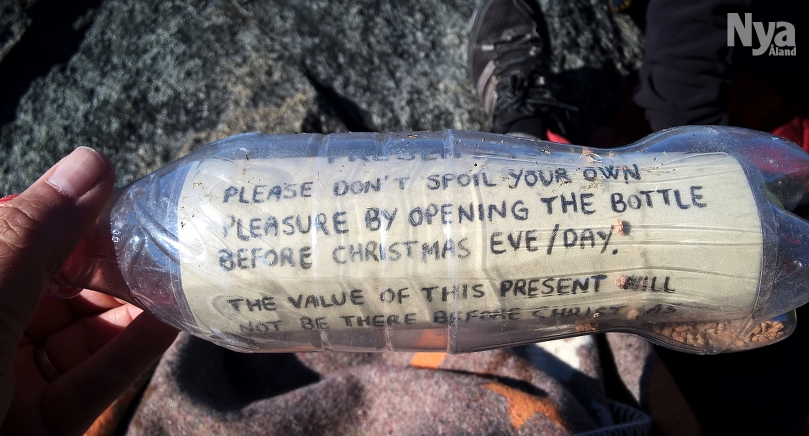 Nya
Åland
PRESENT
PLEASE DON'T SPOIL YOUR OWN
PLEASURE BY OPENING THE BOTTLE
BEFORE CHRISTMAS EVE/DAY.
THE VALUE OF THIS PRESENT WILL
NOT BE THERE BEFORE CHRISTMAS